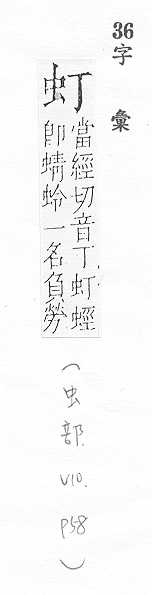 36字 彙
虰
當經切音丁虰蛵
卽蜻蛉一名負勞
(虫部.
V10.
P58
)